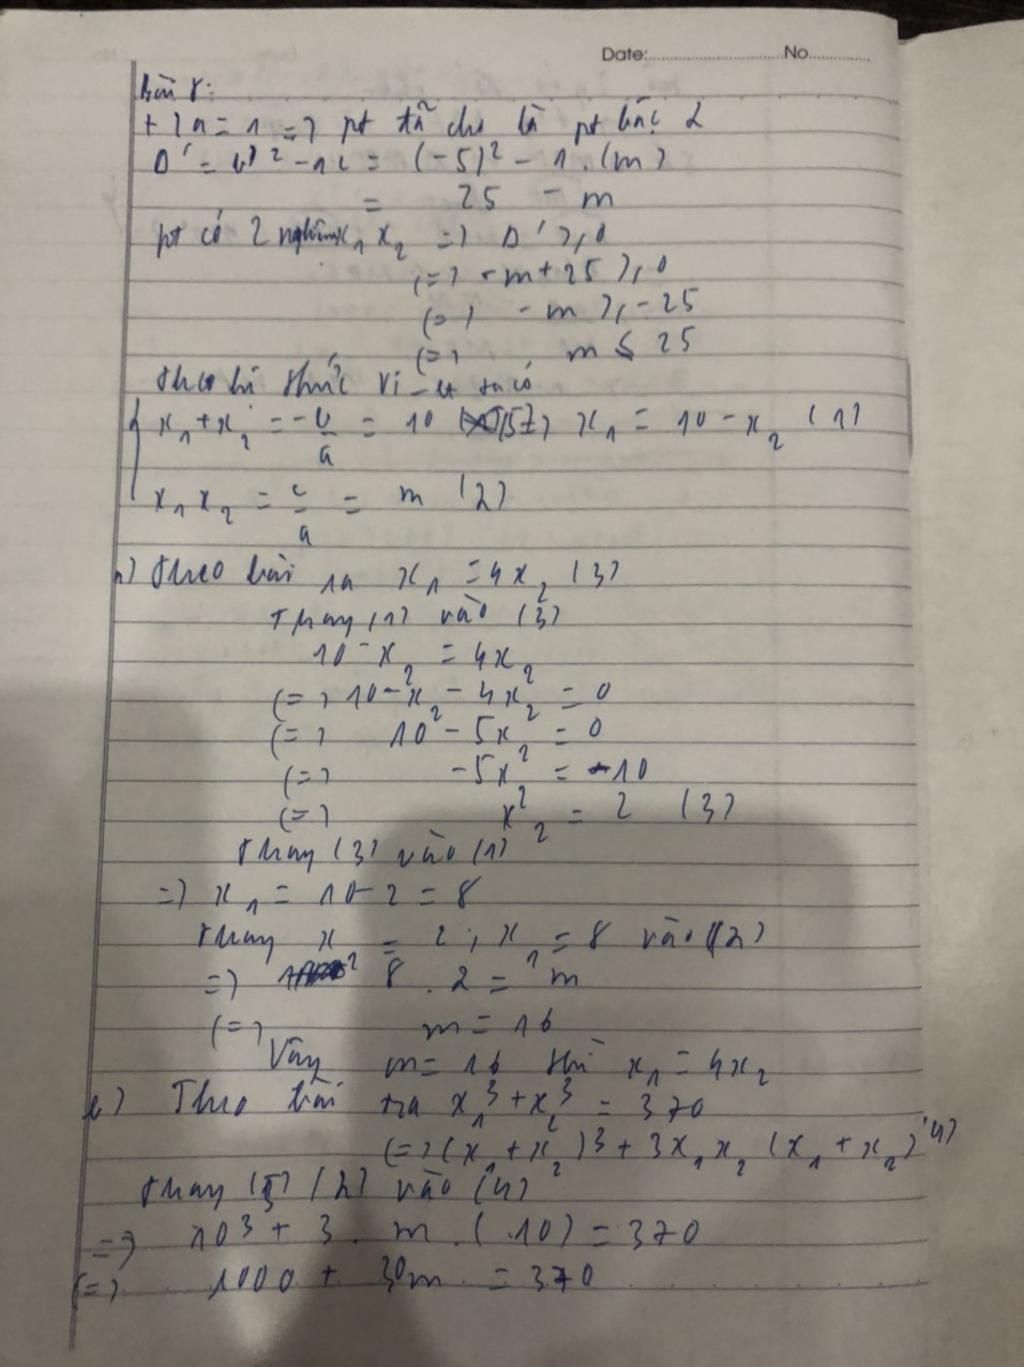 Date:.....................No..............
bài 8:
+) a = 1 => pt đã cho là pt bậc 2
Δ' = b'² - ac = (-5)² - 1.(m)
= 25 - m
pt có 2 nghiệm x₁ x₂ => Δ' ≥ 0
(=) -m + 25 ≥ 0
(=) - m ≥ -25
(=) m ≤ 25
theo hệ thức Vi-et ta có
x₁ + x₂ = -b/a = 10 (5) x₁ = 10 - x₂ (1)
x₁ x₂ = c/a = m (2)
a) theo bài ra x₁ = 4x₂ (3)
Thay (1) vào (3)
10 - x₂ = 4x₂
(=) 10 - x₂ - 4x₂ = 0
(=) 10 - 5x₂ = 0
(=) -5x₂ = -10
(=) x₂ = 2 (3)
thay (3) vào (1)
=) x₁ = 10 - 2 = 8
thay x₂ = 2 ; x₁ = 8 vào (2)
=) 8 . 2 = m
(=) m = 16
Vậy m = 16 thì x₁ = 4x₂
b) Theo bài ra x₁³ + x₂³ = 370
(=) (x₁ + x₂)³ + 3x₁x₂ (x₁ + x₂) (4)
thay (5) (2) vào (4)
=) 10³ + 3 . m . (10) = 370
(=) 1000 + 30m = 370